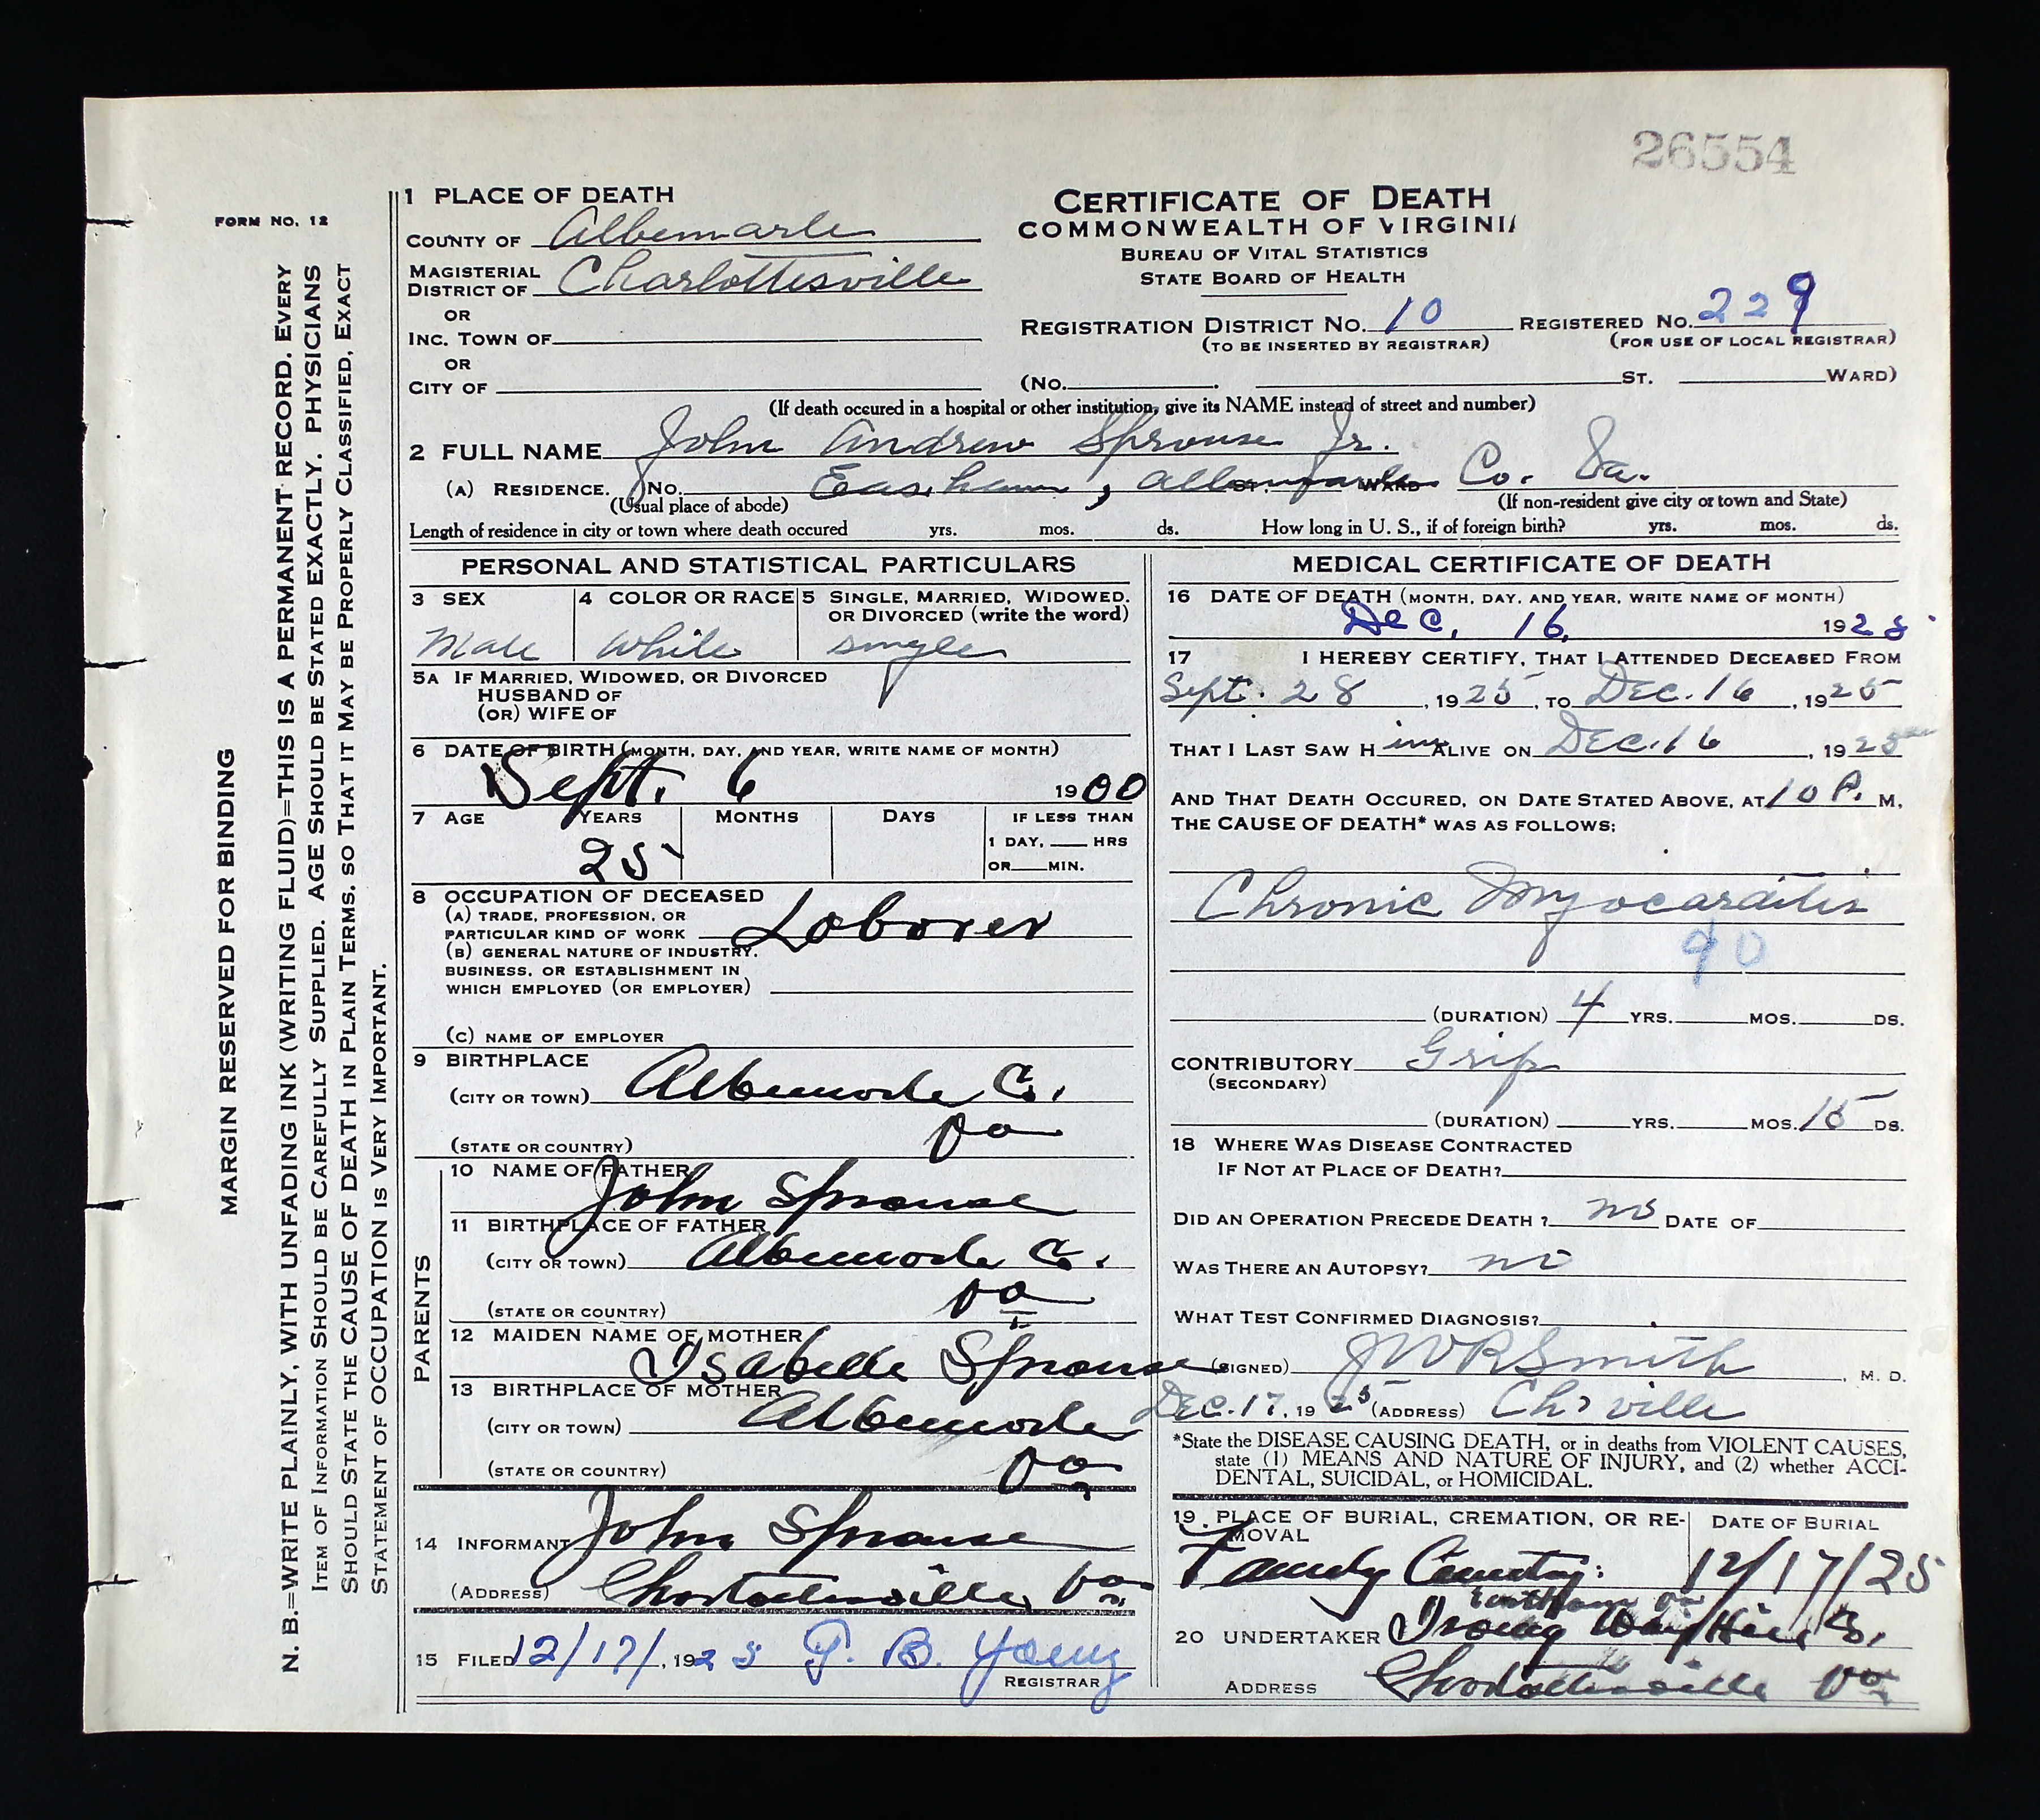 26554
FORM NO. 12
MARGIN RESERVED FOR BINDING
N. B.=WRITE PLAINLY, WITH UNFADING INK (WRITING FLUID)=THIS IS A PERMANENT RECORD. EVERY
ITEM OF INFORMATION SHOULD BE CAREFULLY SUPPLIED. AGE SHOULD BE STATED EXACTLY. PHYSICIANS
SHOULD STATE THE CAUSE OF DEATH IN PLAIN TERMS, SO THAT IT MAY BE PROPERLY CLASSIFIED, EXACT
STATEMENT OF OCCUPATION IS VERY IMPORTANT.
1 PLACE OF DEATH
COUNTY OF Albemarle
MAGISTERIAL DISTRICT OF Charlottesville
OR
INC. TOWN OF
OR
CITY OF
CERTIFICATE OF DEATH
COMMONWEALTH OF VIRGINIA
BUREAU OF VITAL STATISTICS
STATE BOARD OF HEALTH
REGISTRATION DISTRICT NO. 10 REGISTERED NO. 229
(TO BE INSERTED BY REGISTRAR) (FOR USE OF LOCAL REGISTRAR)
(NO. ST. WARD)
(If death occured in a hospital or other institution, give its NAME instead of street and number)
2 FULL NAME John Andrew Sprouse Jr.
(A) RESIDENCE. NO. Easham, Albemarle ST. WARD Co. Va.
(Usual place of abode) (If non-resident give city or town and State)
Length of residence in city or town where death occured yrs. mos. ds. How long in U. S., if of foreign birth? yrs. mos. ds.
PERSONAL AND STATISTICAL PARTICULARS
3 SEX 4 COLOR OR RACE 5 SINGLE, MARRIED, WIDOWED, OR DIVORCED (write the word)
Male White single
5A IF MARRIED, WIDOWED, OR DIVORCED
HUSBAND OF
(OR) WIFE OF
6 DATE OF BIRTH (MONTH, DAY, AND YEAR, WRITE NAME OF MONTH)
Sept. 6 1900
7 AGE YEARS MONTHS DAYS IF LESS THAN
1 DAY, HRS
25 OR MIN.
8 OCCUPATION OF DECEASED
(A) TRADE, PROFESSION, OR
PARTICULAR KIND OF WORK Laborer
(B) GENERAL NATURE OF INDUSTRY.
BUSINESS, OR ESTABLISHMENT IN
WHICH EMPLOYED (OR EMPLOYER)
(C) NAME OF EMPLOYER
9 BIRTHPLACE
(CITY OR TOWN) Albemarle Co.
(STATE OR COUNTRY) Va
PARENTS
10 NAME OF FATHER
John Sprouse
11 BIRTHPLACE OF FATHER
(CITY OR TOWN) Albemarle Co.
(STATE OR COUNTRY) Va
12 MAIDEN NAME OF MOTHER
Isabelle Sprouse
13 BIRTHPLACE OF MOTHER
(CITY OR TOWN) Albemarle
(STATE OR COUNTRY) Va
14 INFORMANT John Sprouse
(ADDRESS) Charlottesville Va.
15 FILED 12/17/, 1925 T. B. Young
REGISTRAR
MEDICAL CERTIFICATE OF DEATH
16 DATE OF DEATH (MONTH, DAY, AND YEAR, WRITE NAME OF MONTH)
Dec. 16, 1925
17 I HEREBY CERTIFY, THAT I ATTENDED DECEASED FROM
Sept. 28, 1925, TO Dec. 16, 1925
THAT I LAST SAW Him ALIVE ON Dec. 16, 1925
AND THAT DEATH OCCURED, ON DATE STATED ABOVE, AT 10 P. M,
THE CAUSE OF DEATH* WAS AS FOLLOWS:
Chronic Myocarditis
90
(DURATION) 4 YRS. MOS. DS.
CONTRIBUTORY Grip
(SECONDARY)
(DURATION) YRS. MOS. 15 DS.
18 WHERE WAS DISEASE CONTRACTED
IF NOT AT PLACE OF DEATH?
DID AN OPERATION PRECEDE DEATH? no DATE OF
WAS THERE AN AUTOPSY? no
WHAT TEST CONFIRMED DIAGNOSIS?
(SIGNED) J W R Smith, M. D.
Dec. 17, 1925 (ADDRESS) Ch'ville
*State the DISEASE CAUSING DEATH, or in deaths from VIOLENT CAUSES,
state (1) MEANS AND NATURE OF INJURY, and (2) whether ACCI-
DENTAL, SUICIDAL, or HOMICIDAL.
19. PLACE OF BURIAL, CREMATION, OR RE-MOVAL DATE OF BURIAL
Family Cemetery: 12/17/25
Eastham Va
20 UNDERTAKER Irving Way Hill Co.
ADDRESS Charlottesville Va.